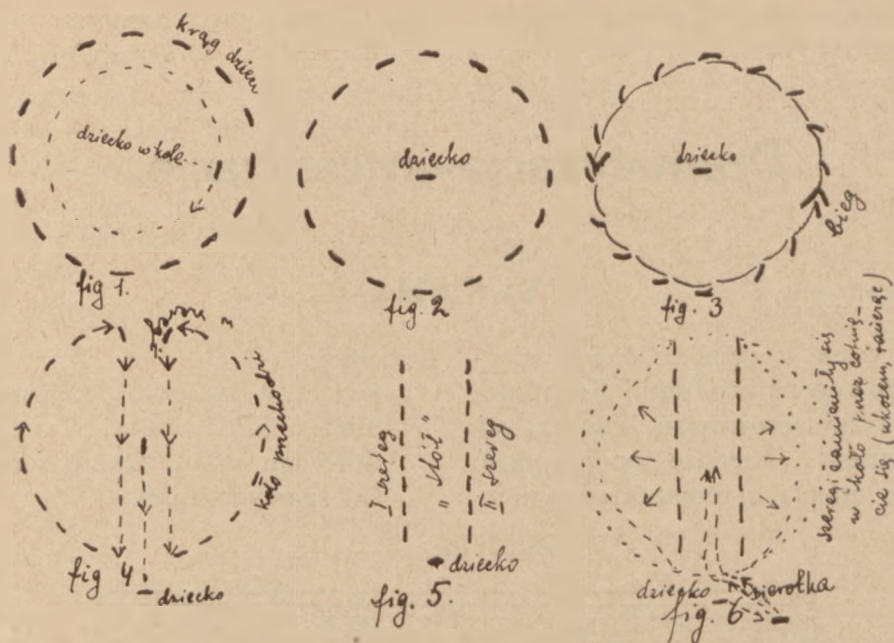 krąg dzieci
dziecko w kole
fig 1.
dziecko
fig. 2
dziecko
bieg
fig. 3
koło przechodzi
dziecko
fig 4
I szereg
"stół"
II szereg
dziecko
fig. 5.
szeregi zamieniły się
w koło przez cofnię-
cie się (
dziecko
sierotka
fig. 6